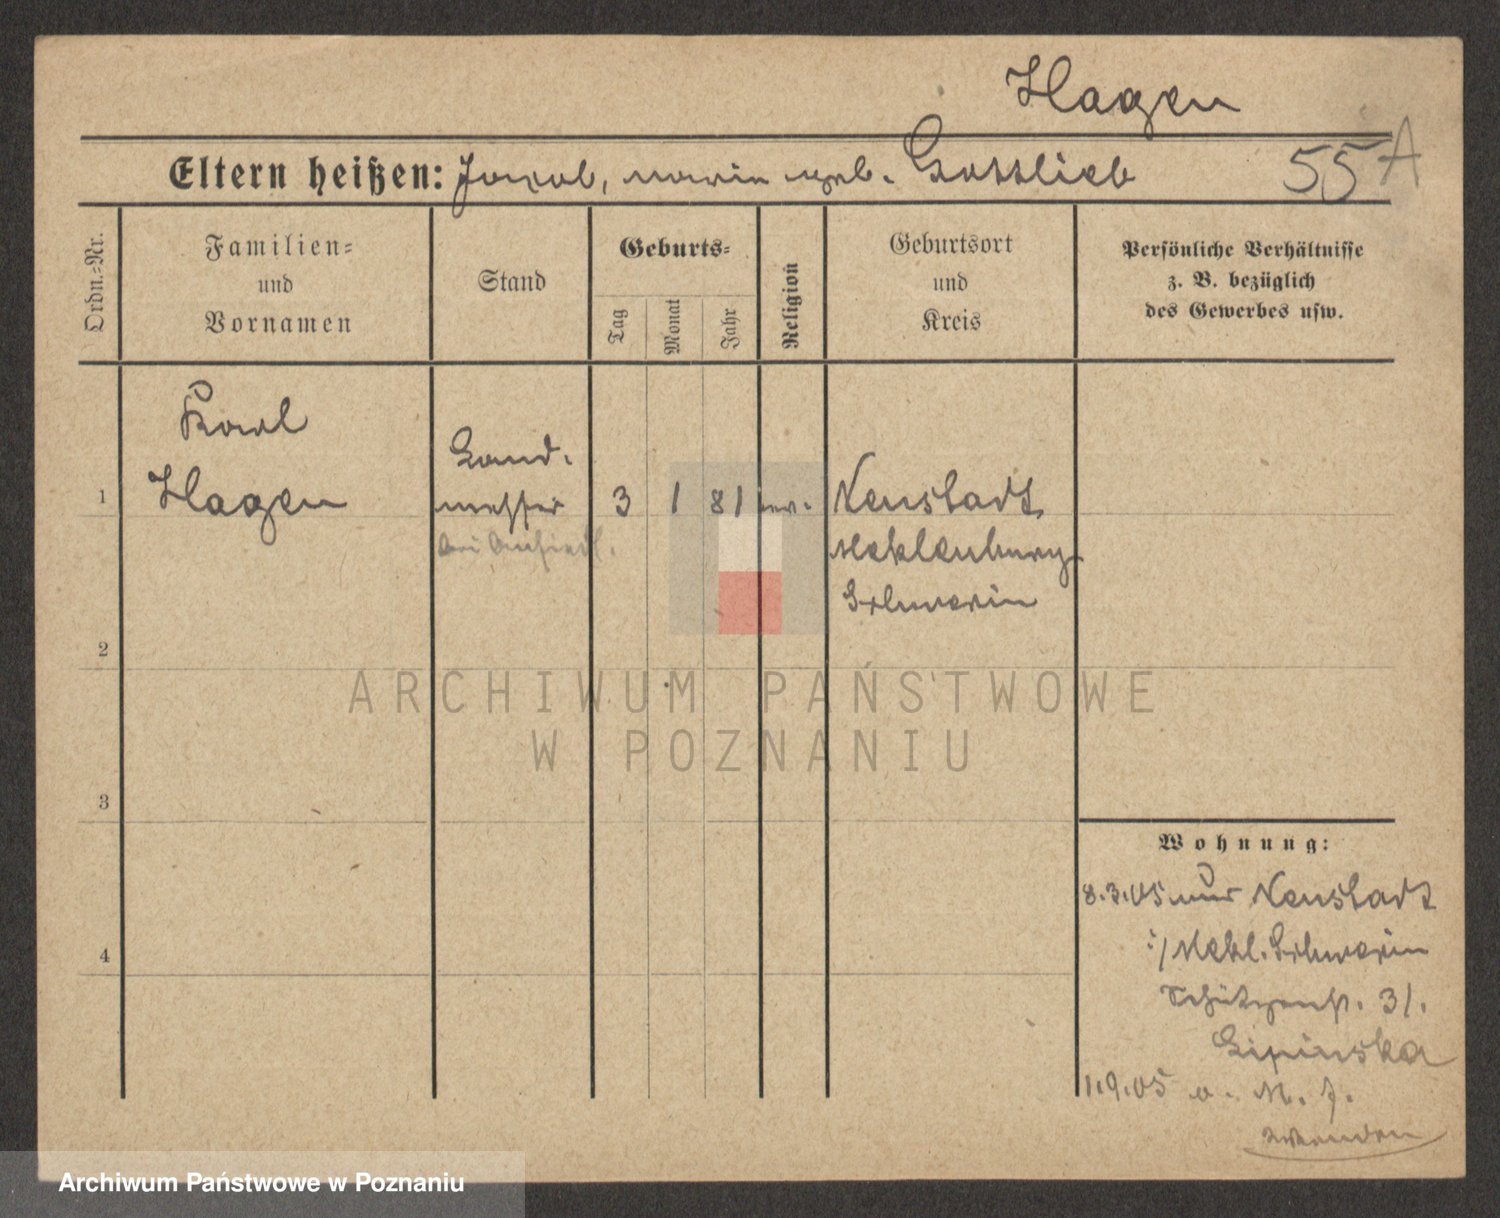 Hagen
Eltern heißen: Jacob, Marie geb. Gottlieb 55 A
Ordn.-Nr.
Familien-
und
Vornamen
Stand
Geburts-
Tag
Monat
Jahr
Religion
Geburtsort
und
Kreis
Persönliche Verhältnisse
z. B. bezüglich
des Gewerbes usw.
1
Karl
Hagen
Land-
messer
3 1 81 ev.
Neustadt
Meklenburg
Schwerin
2
3
4
ARCHIWUM PAŃSTWOWE
W POZNANIU
Wohnung:
8.3.05 Neustadt
i/Mekl. Schwerin
Schützenstr. 31.
Lipinska
1.9.05 a. M. 7.
wenden
Archiwum Państwowe w Poznaniu